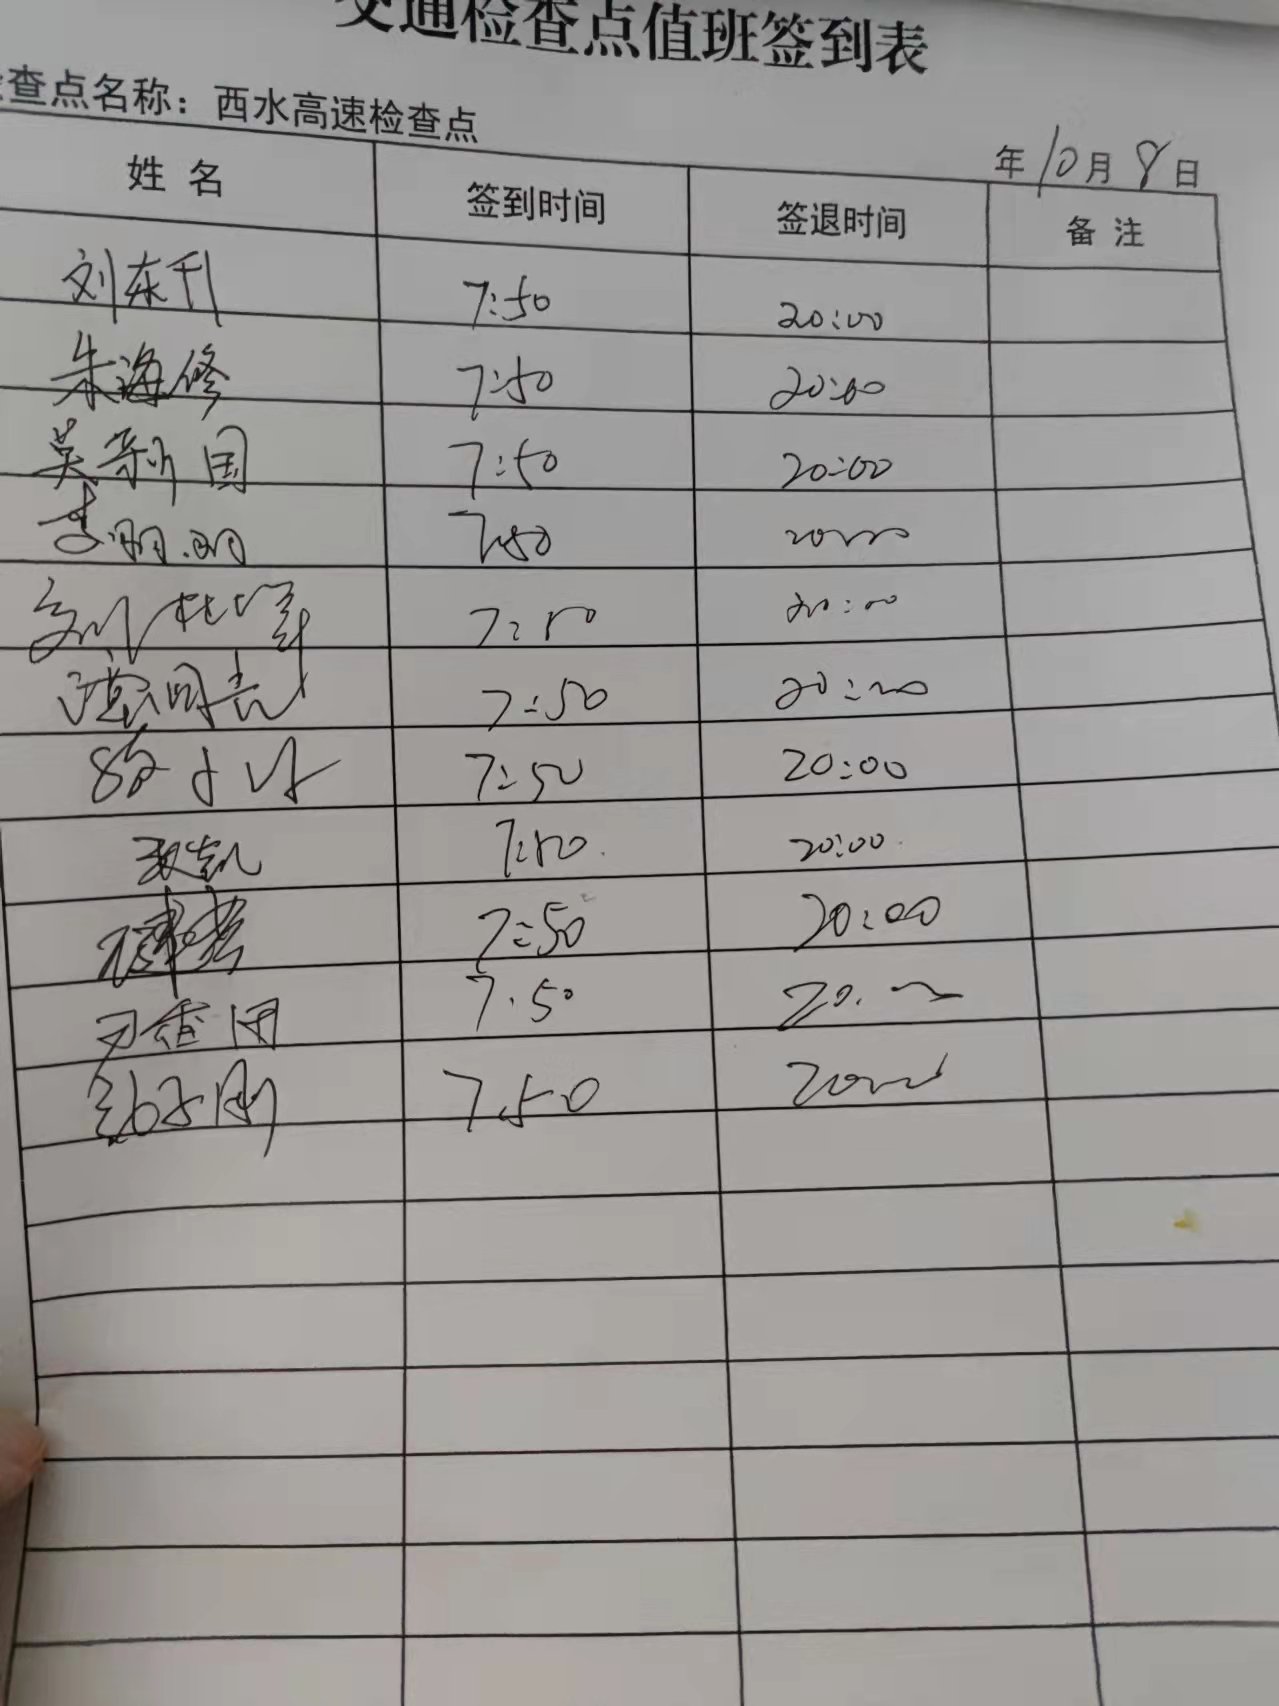 交通检查点值班签到表
查点名称：西水高速检查点
年10月8日
姓 名 签到时间 签退时间 备 注
刘东刊 7:50 20:00
朱海修 7:50 20:00
吴新国 7:50 20:00
李明明 7:50 20:00
7:50 20:00
7:50 20:00
7:50 20:00
7:50 20:00
7:50 20:00
7.50 20:00
7.50 20:00